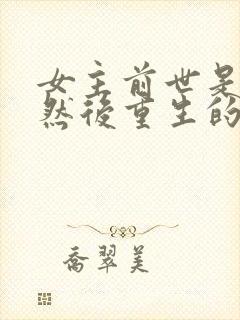 女主前世是
然後重生的
喬翠美